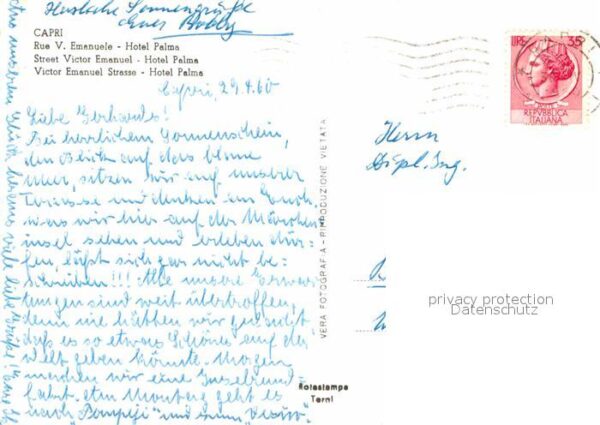 Herzliche Sonnengrüße
Euer Bobby
CAPRI
Rue V. Emanuele - Hotel Palma
Street Victor Emanuel - Hotel Palma
Victor Emanuel Strasse - Hotel Palma
Capri, 29.4.60
Liebe Gerhardes!
Bei herrlichem Sonnenschein,
den Blick auf das blaue
Meer, sitzen wir auf unserer
Terrasse und denken an Euch
was wir hier auf der Märchen
insel sehen und erleben dür-
fen läßt sich gar nicht be-
schreiben!!! Alle unsere Erwar-
tungen sind weit übertroffen,
denn nie hätten wir geglaubt
daß es so etwas Schönes auf der
Welt geben könnte. Morgen
machen wir eine Inselrund-
fahrt. Am Montag geht es
nach "Pompeji" und zum "Vesuv"
unserem Glück heraus viele liebe Grüße! Eure
LIRE 35
REPVBBLICA
ITALIANA
Herrn
Dipl. Ing.
VERA FOTOGRAFIA - RIPRODUZIONE VIETATA
Rotastampa
Terni
privacy protection
Datenschutz